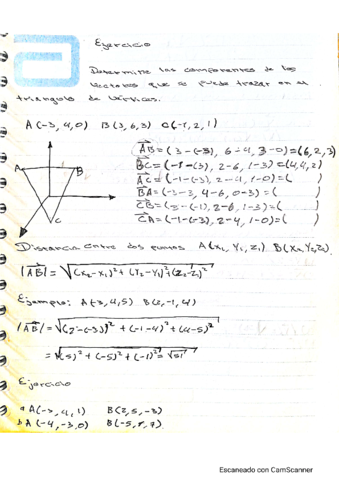 Ejercicio
Determine las componentes de los
vectores que se puede trazar en el
triangulo de vértices.
A(-3, 4, 0) B(3, 6, 3) C(-1, 2, 1)
AB = (3-(-3), 6-4, 3-0) = (6, 2, 3)
BC = (-1-(3), 2-6, 1-3) = (4, 4, 2)
AC = (-1-(-3), 2-4, 1-0) = ( )
BA = (-3-3, 4-6, 0-3) = ( )
CB = (3-(-1), 2-6, 3-1) = ( )
CA = (-1-(-3), 2-4, 1-0) = ( )
A
B
C
Distancia entre dos puntos A(x₁, Y₁, Z₁) B(X₂, Y₂, Z₂)
|AB| = √(X₂-X₁)² + (Y₂-Y₁)² + (Z₂-Z₁)²
Ejemplo: A(-3, 4, 5) B(2, -1, 4)
|AB| = √(2-(-3))² + (-1-4)² + (4-5)²
= √(5)² + (-5)² + (-1)² = √51
Ejercicio
a A(-3, 4, 1) B(2, 5, -3)
b A(-4, -3, 0) B(-5, 1, 7)
Escaneado con CamScanner